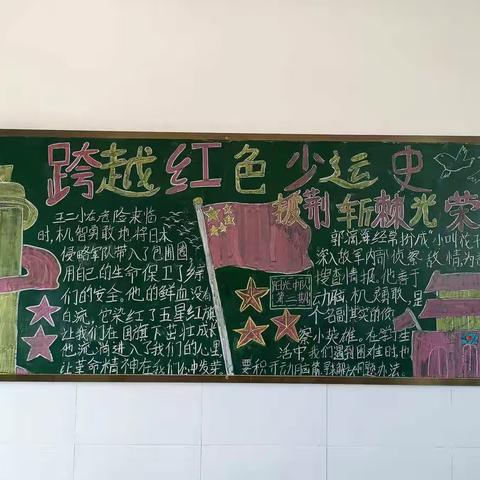 跨越红色少运史
披荆斩棘光荣
王二小在危险来临
时,机智勇敢地将日本
侵略军队带入了包围圈,
用自己的生命保卫了乡
们的安全。他的鲜血没有
白流,它染红了五星红旗
让我们在国旗下茁壮成长
他流淌进入了我们的心里,
让革命精神在我们心中发芽
阳光中队
第二期
郭滴海经常扮成"小叫花子
深入敌军内部侦察敌情为
搜查情报。他善于
动脑,机智勇敢,是
个名副其实的侦
察小英雄。在学生
活中我们遇到困难时,也
要积极开动脑筋,寻找解决问题办法